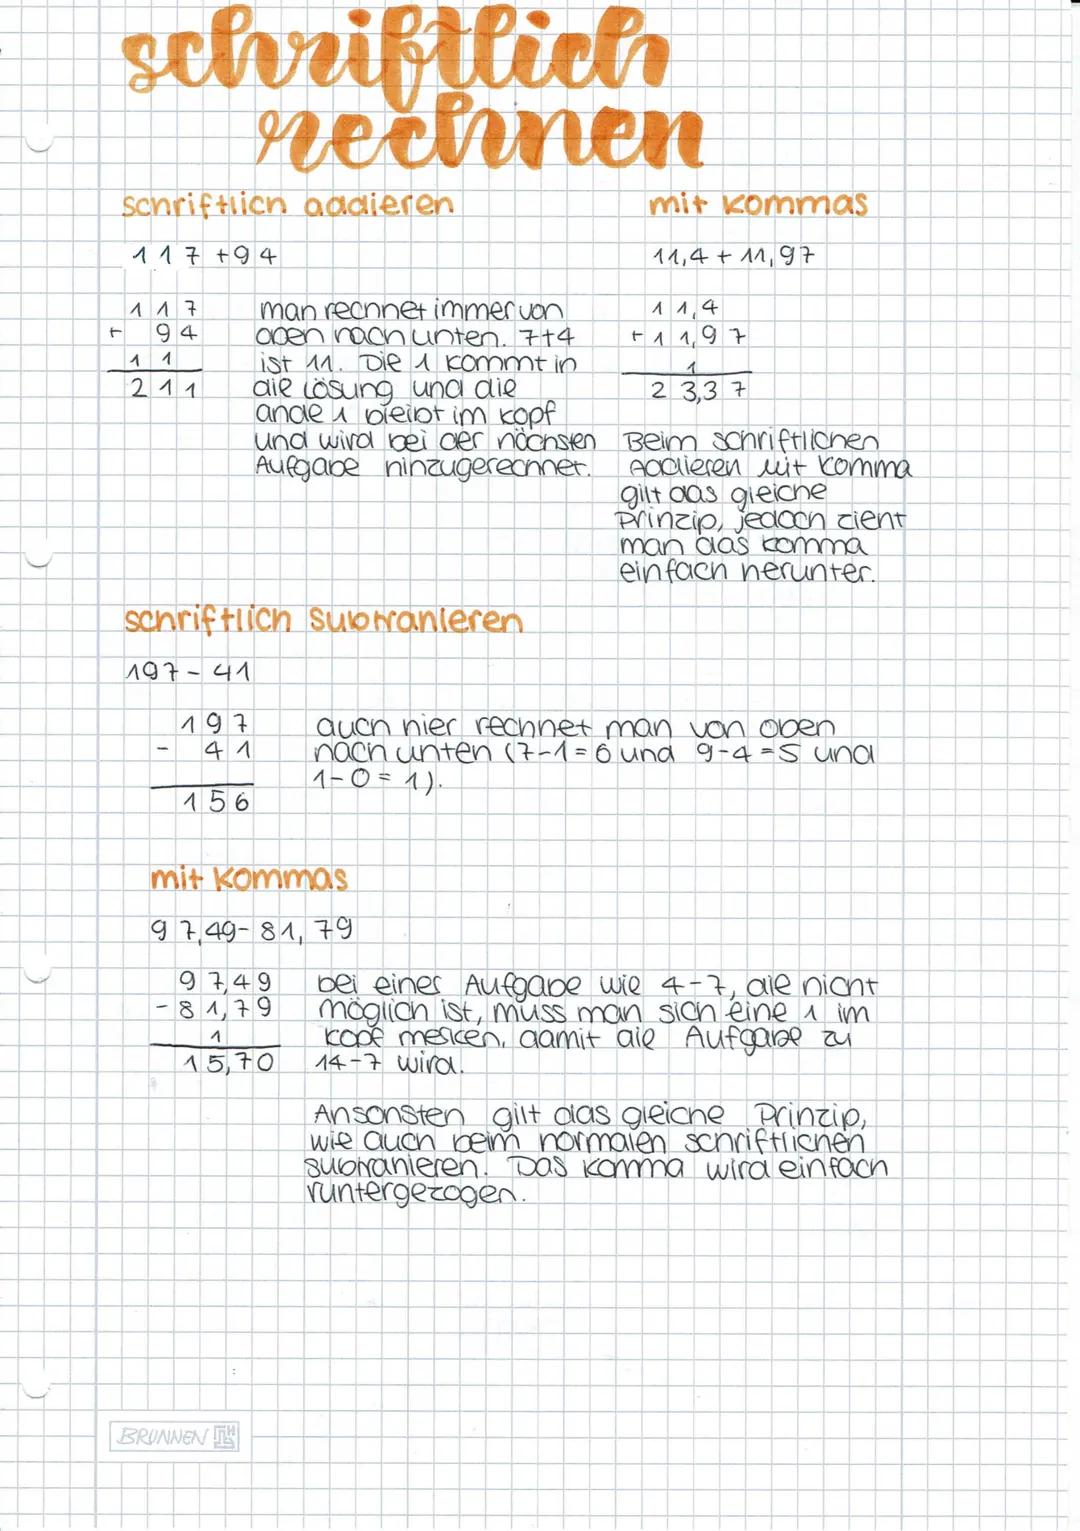 schriftlich
rechnen
schriftlich addieren
117 + 94
117
+ 94
1 1
211
man rechnet immer von
oben nach unten. 7+4
ist 11. Die 1 kommt in
die Lösung und die
ande 1 bleibt im Kopf
und wird bei der nächsten
Aufgabe hinzugerechnet.
mit Kommas
11,4 + 11,97
11,4
+ 11,97
1
23,37
Beim schriftlichen
Addieren mit Komma
gilt das gleiche
Prinzip, jedoch zieht
man das Komma
einfach herunter.
schriftlich Subtrahieren
197 - 41
197
- 41
156
auch hier rechnet man von oben
nach unten (7-1=6 und 9-4=5 und
1-0=1).
mit Kommas
97,49 - 81,79
97,49
- 81,79
1
15,70
bei einer Aufgabe wie 4-7, die nicht
möglich ist, muss man sich eine 1 im
Kopf merken, damit die Aufgabe zu
14-7 wird.
Ansonsten gilt das gleiche Prinzip,
wie auch beim normalen schriftlichen
subtrahieren. Das Komma wird einfach
runtergezogen.
BRUNNEN